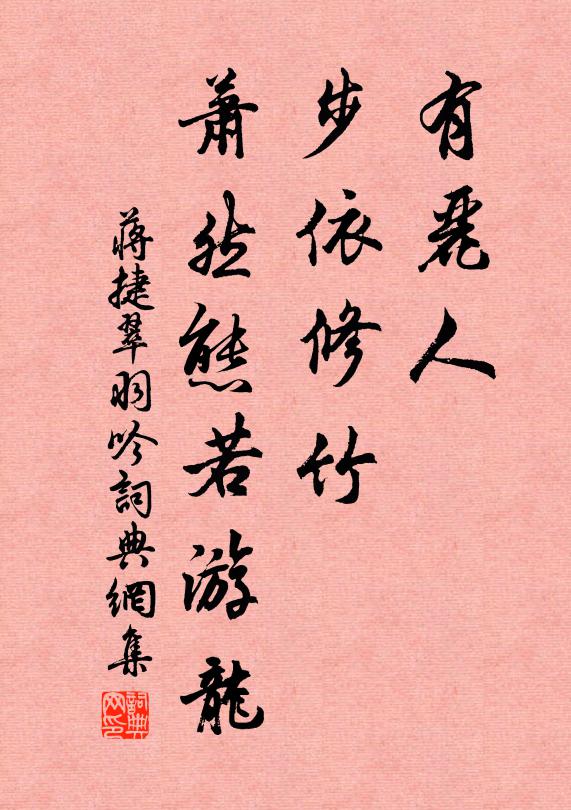 有麗人
步依修竹
蕭然態若游龍
蔣捷翠羽吟詞典網集
詞典
网印